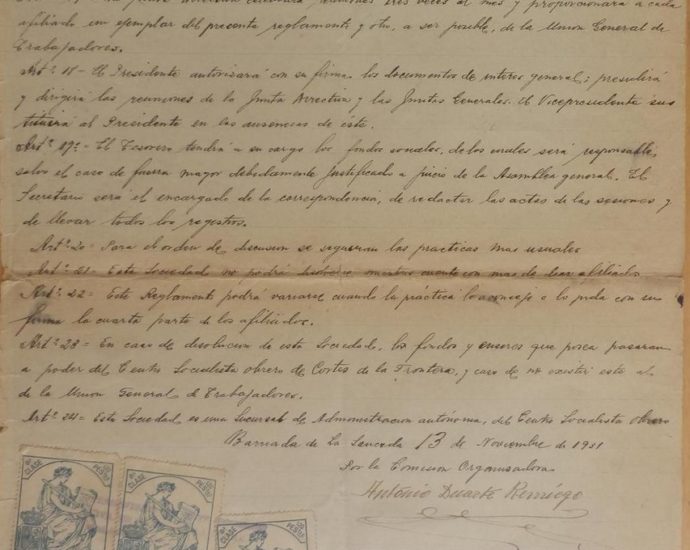 reuniones tres veces al mes y proporcionará a cada
afiliado un ejemplar del presente reglamento y otro, a ser posible, de la Union General de
Trabajadores.
Artº 18 - El Presidente autorizará con su firma los documentos de interes general; presidirá
y dirigirá las reuniones de la Junta Directiva y las Juntas Generales. El Vicepresidente sus
tituirá al Presidente en las ausencias de éste.
Artº 19º - El Tesorero tendrá a su cargo los fondos sociales, de los cuales será responsable,
salvo el caso de fuerza mayor debidamente justificado a juicio de la Asamblea general. El
Secretario será el encargado de la correspondencia, de redactar las actas de las sesiones y
de llevar todos los registros.
Artº 20 - Para el orden de discusion se seguiran las practicas mas usuales
Artº 21 - Esta Sociedad no podrá disolverse mientras cuente con mas de afiliados
Artº 22 - Este Reglamento podrá variarse cuando la práctica lo aconseje o lo pida con su
firma la cuarta parte de los afiliados.
Artº 23 = En caso de disolucion de esta Sociedad, los fondos y enseres que posea pasaran
a poder del Centro Socialista obrero de Cortes de la Frontera, y caso de no existir este al
de la Union General de Trabajadores.
Artº 24 = Esta Sociedad es una Sucursal de Administracion autónoma, del Centro Socialista obrero
Barriada de La Sauceda 13 de Noviembre de 1931
Por la Comision Organizadora
Antonio Duarte Remigo
8ª CLASE PESETAS
8ª CLASE PESETAS
CLASE PESETAS